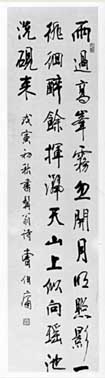 雨過高峯霧忽開月明照影一
徘徊醉餘揮灑天山上似向瑤池
洗硯來 戊寅初秋 翁詩 曹伯庸